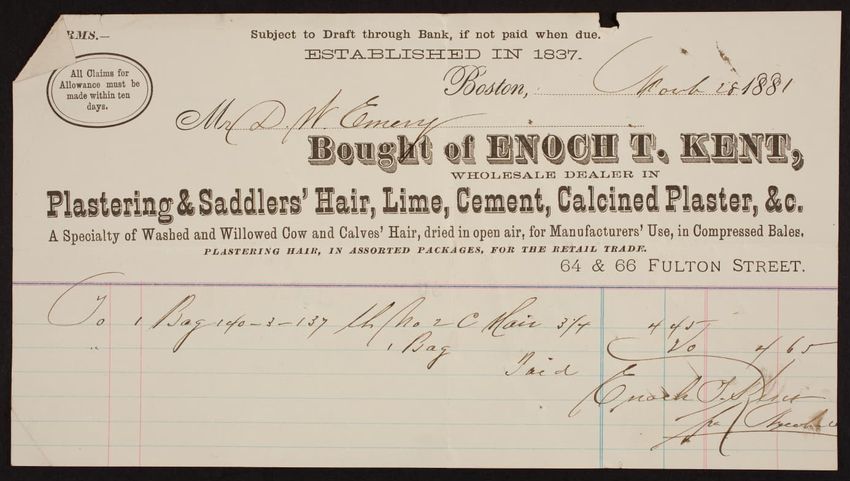 RMS.—
Subject to Draft through Bank, if not paid when due.
ESTABLISHED IN 1837.
All Claims for
Allowance must be
made within ten
days.
Boston, March 28 1881
Mr D. W. Emery
Bought of ENOCH T. KENT,
WHOLESALE DEALER IN
Plastering & Saddlers' Hair, Lime, Cement, Calcined Plaster, &c.
A Specialty of Washed and Willowed Cow and Calves' Hair, dried in open air, for Manufacturers' Use, in Compressed Bales.
PLASTERING HAIR, IN ASSORTED PACKAGES, FOR THE RETAIL TRADE.
64 & 66 FULTON STREET.
To 1 Bag 140-3-137 lb No 2 C Hair 3¼ 4 45
" 1 Bag 20 4 65
Paid
Enoch T. Kent
per